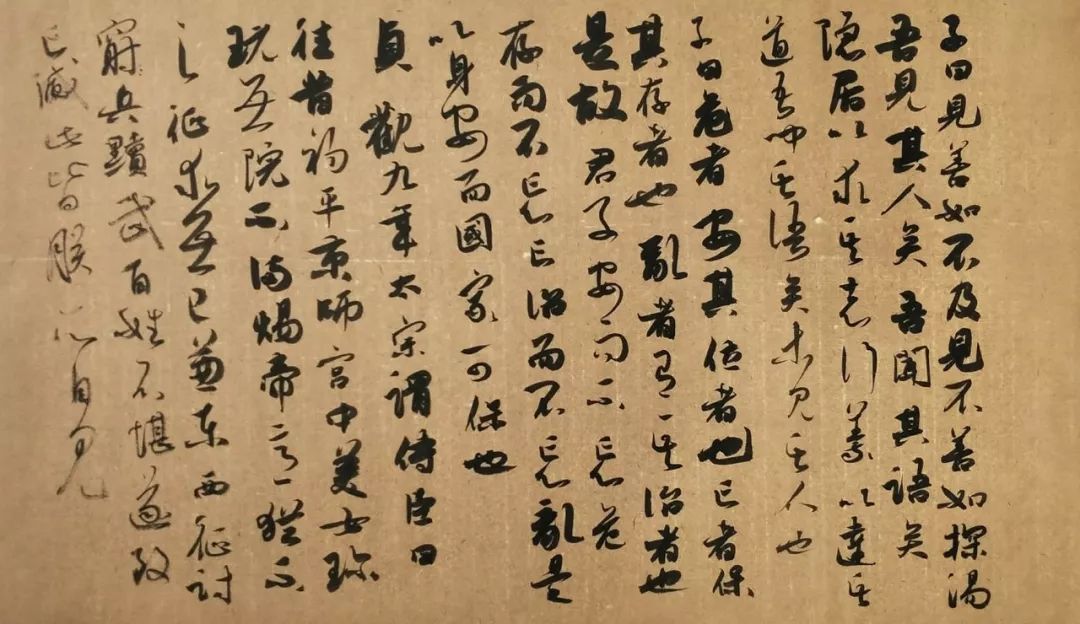 子曰見善如不及見不善如探湯
吾見其人矣吾聞其語矣
隐居以求其志行義以達其
道吾聞其語矣未見其人也
子曰危者安其位者也亡者保
其存者也亂者有其治者也
是故君子安而不忘危
存而不忘亡治而不忘亂是
以身安而國家可保也
貞觀九年太宗謂侍臣曰
往昔初平京師宫中美女珍
玩無院不满煬帝意猶不
足征求無已兼東西征討
窮兵黷武百姓不堪遂致
亡滅此皆朕所目見